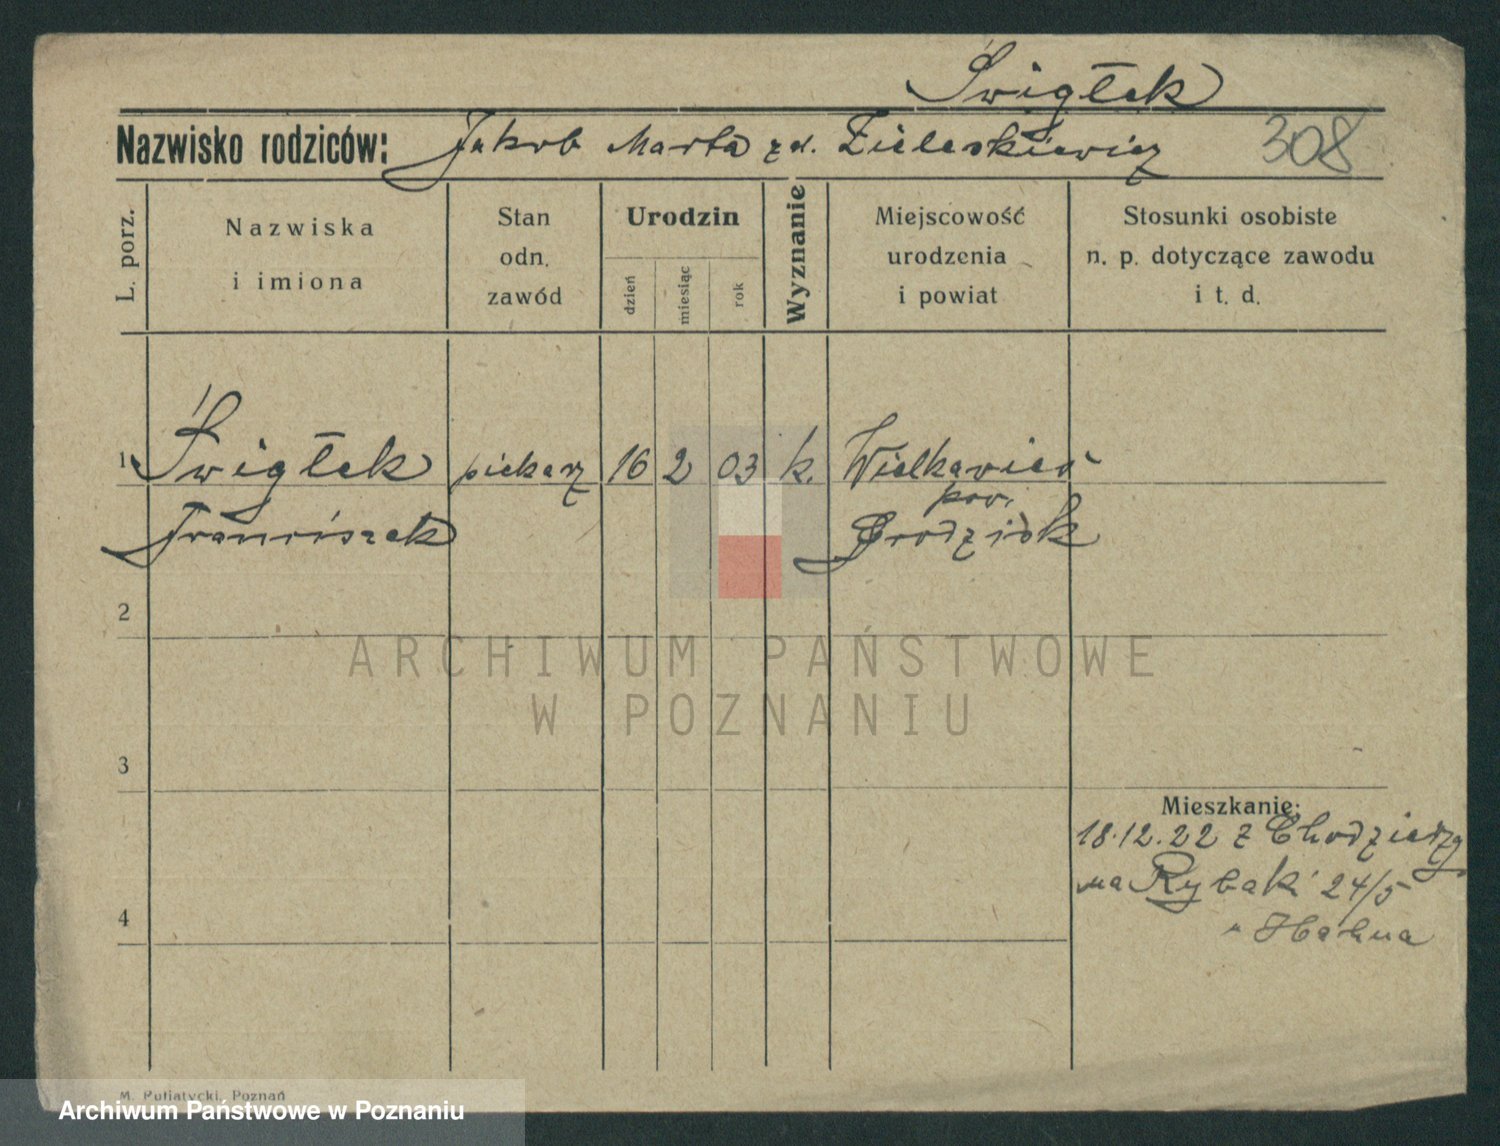 Świgłek
Nazwisko rodziców: Jakob Marta zd. Zieleskiewicz 308
L. porz.
Nazwiska
i imiona
Stan
odn.
zawód
Urodzin
dzień
miesiąc
rok
Wyznanie
Miejscowość
urodzenia
i powiat
Stosunki osobiste
n. p. dotyczące zawodu
i t. d.
1 Świgłek piekarz 16 2 03 k. Wielkawieś
pow.
Franciszek Grodzisk
2
ARCHIWUM PAŃSTWOWE
W POZNANIU
3
Mieszkanie:
18.12.22 z Chodzieży
na Rybaki 24/5
4
u Hahna
M. Putiatycki, Poznań
Archiwum Państwowe w Poznaniu